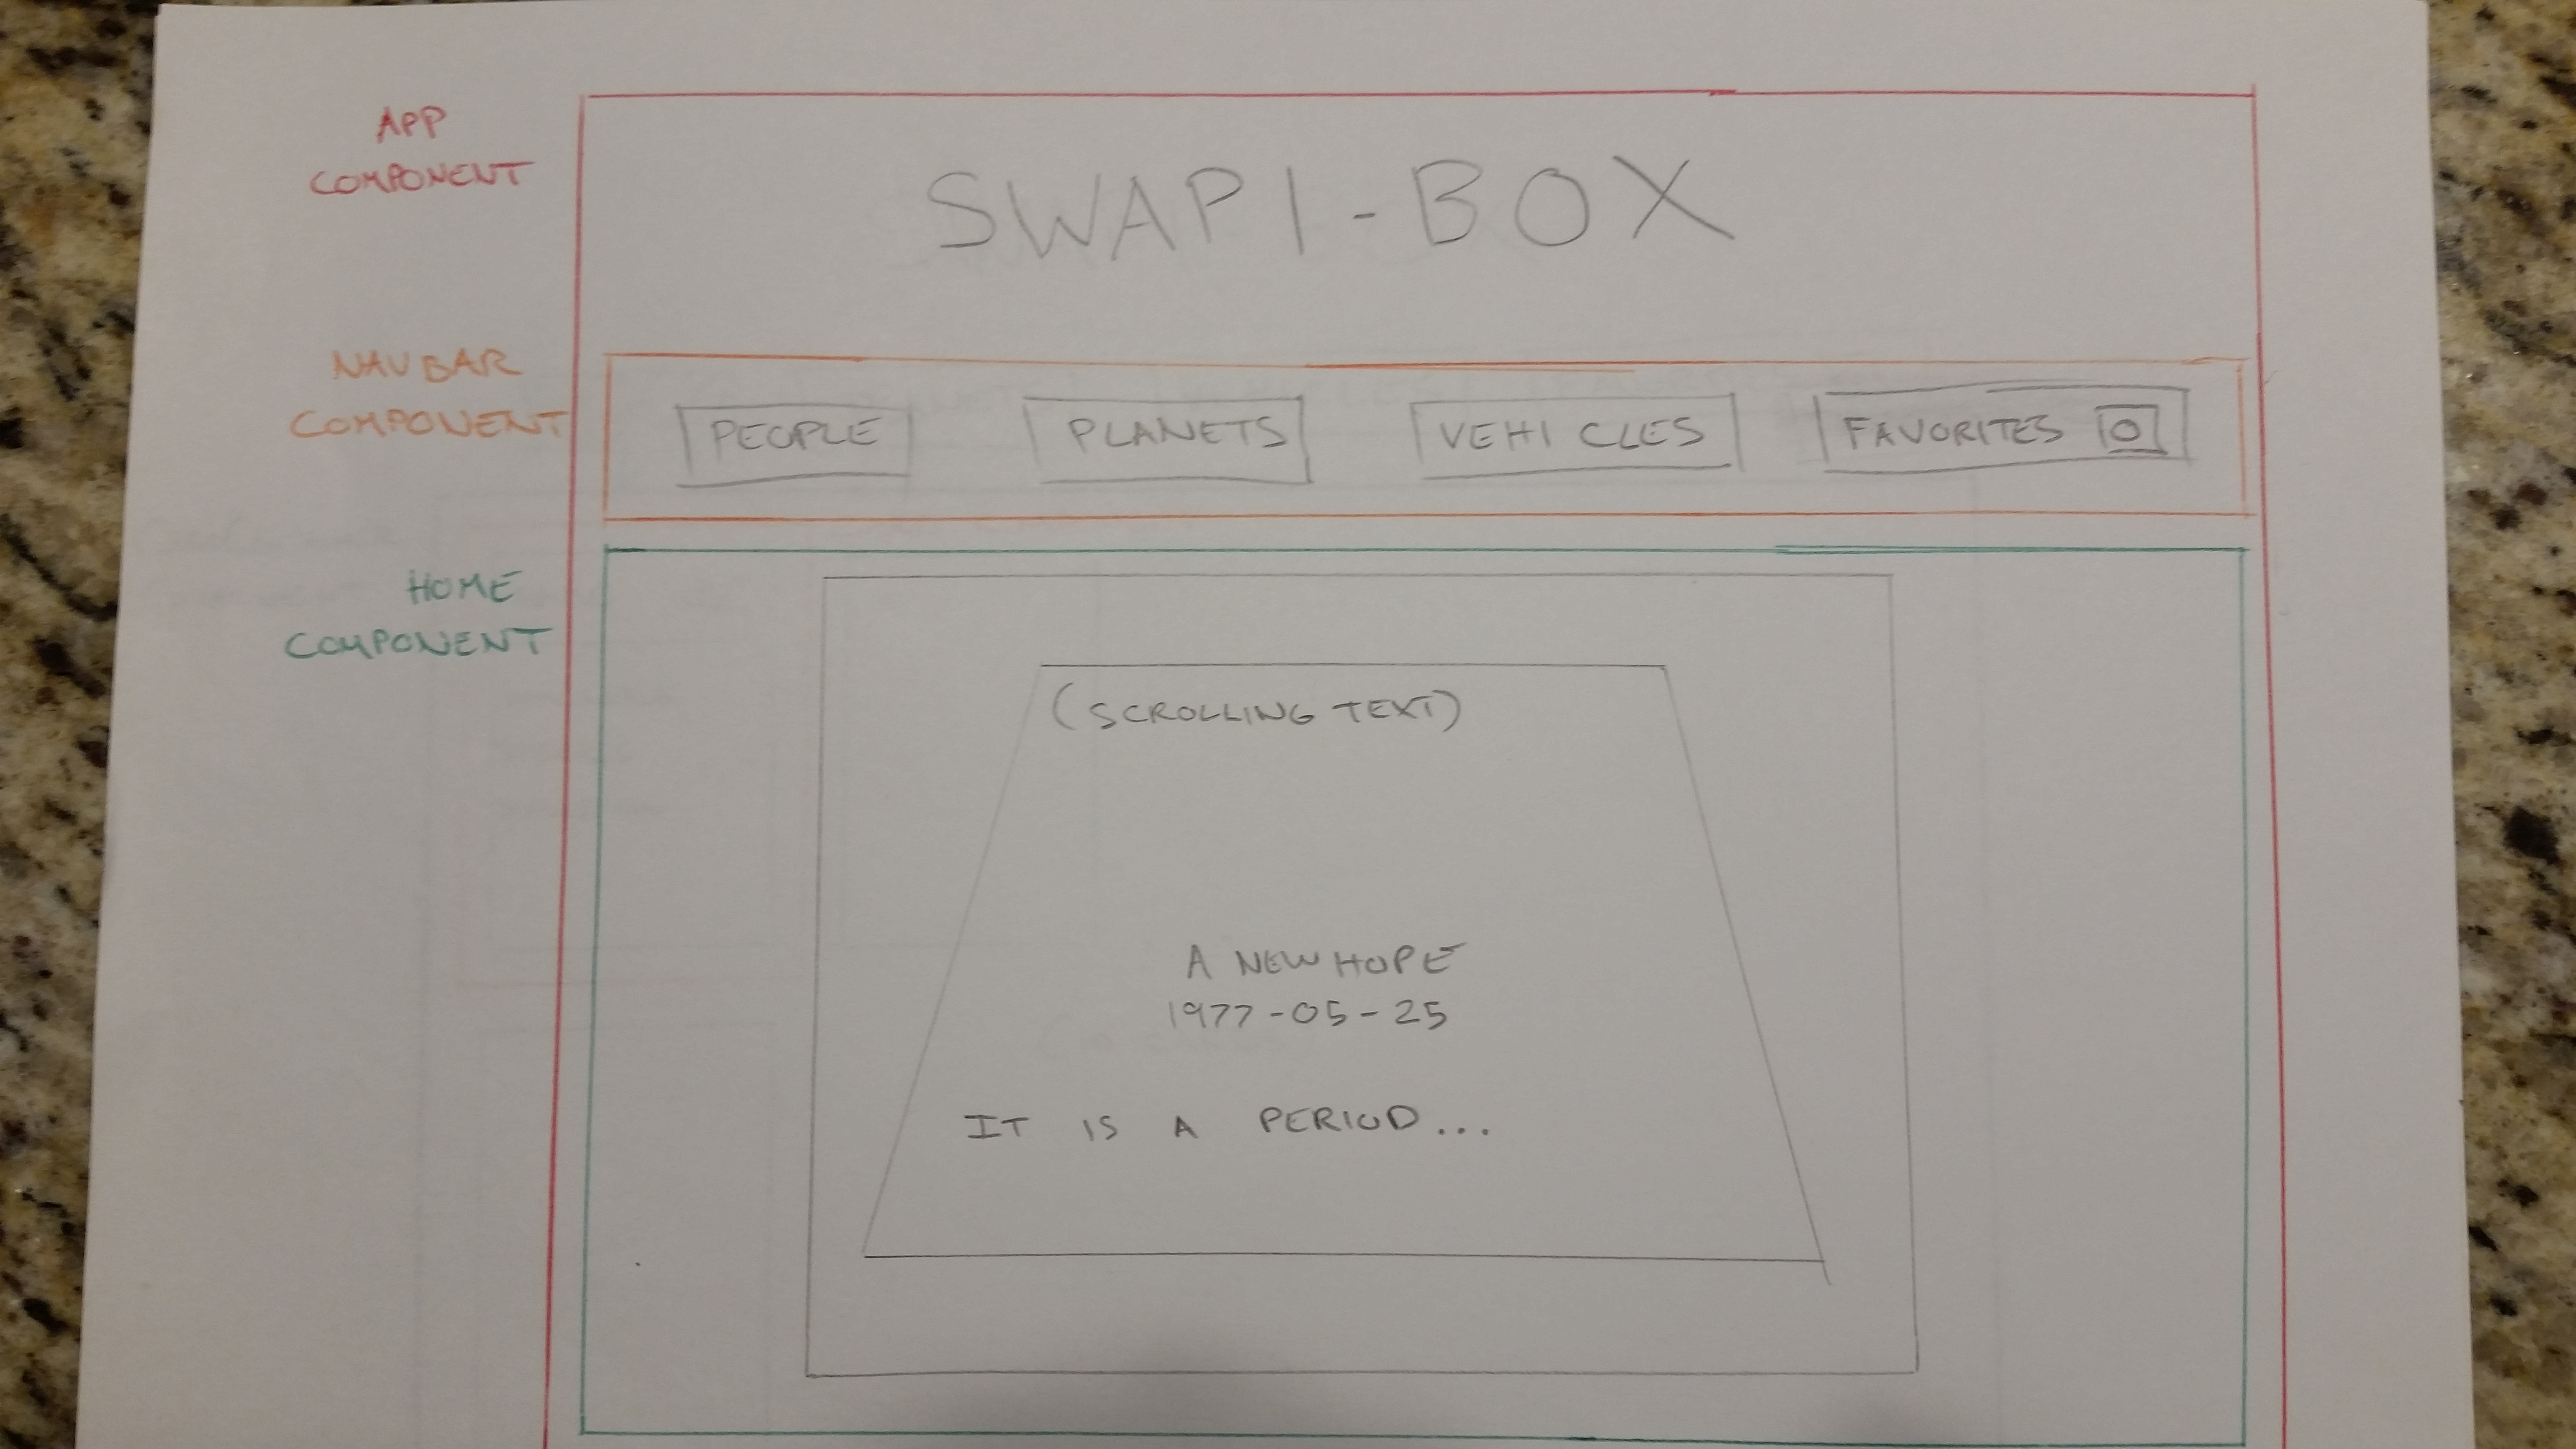 APP
COMPONENT
SWAPI-BOX
NAVBAR
COMPONENT
PEOPLE
PLANETS
VEHICLES
FAVORITES 0
HOME
COMPONENT
(SCROLLING TEXT)
A NEW HOPE
1977-05-25
IT IS A PERIOD...